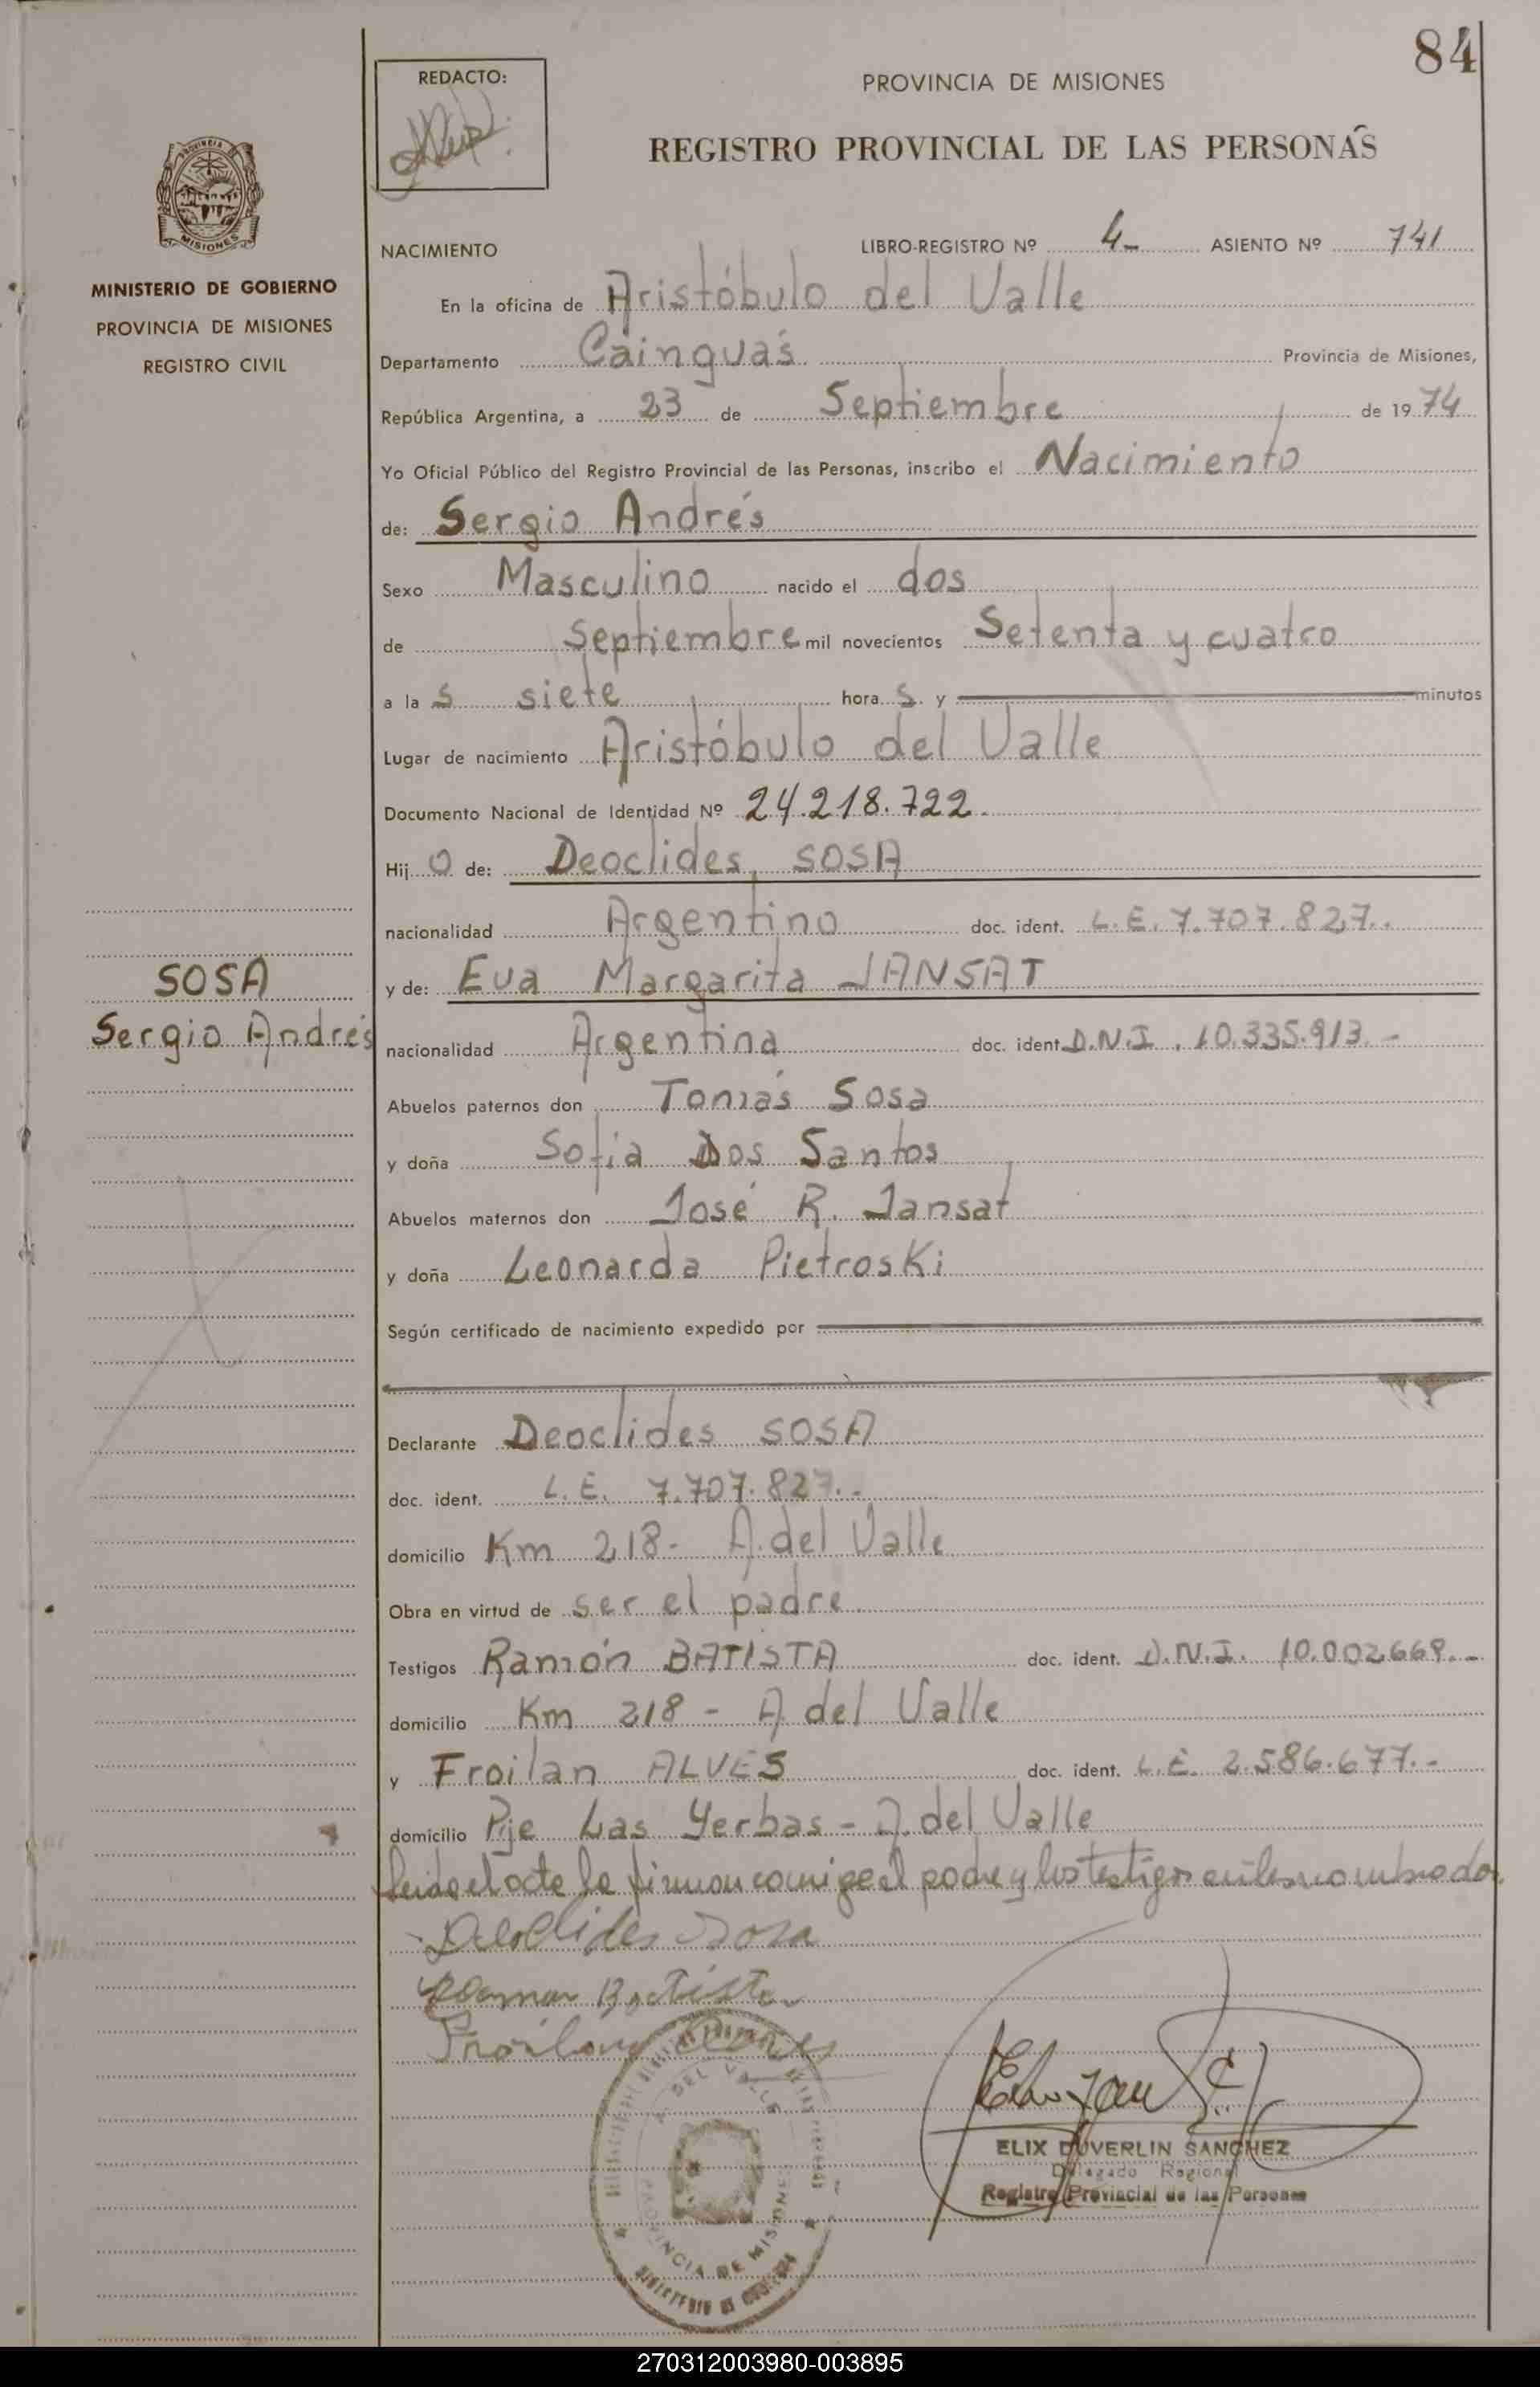 84
REDACTO:
PROVINCIA DE MISIONES
REGISTRO PROVINCIAL DE LAS PERSONAS
MISIONES
MINISTERIO DE GOBIERNO
PROVINCIA DE MISIONES
REGISTRO CIVIL
NACIMIENTO LIBRO-REGISTRO Nº 4- ASIENTO Nº 741
En la oficina de Aristóbulo del Valle
Departamento Cainguás Provincia de Misiones,
República Argentina, a 23 de Septiembre de 1974
Yo Oficial Público del Registro Provincial de las Personas, inscribo el Nacimiento
de: Sergio Andrés
Sexo Masculino nacido el dos
de Septiembre mil novecientos Setenta y cuatro
a las siete horas y minutos
Lugar de nacimiento Aristóbulo del Valle
Documento Nacional de Identidad Nº 24.218.722.
Hijo de: Deoclides SOSA
nacionalidad Argentino doc. ident. L.E. 7.707.827.-
y de: Eva Margarita JANSAT
SOSA
Sergio Andrés
nacionalidad Argentina doc. ident. D.N.I. 10.335.913.-
Abuelos paternos don Tomás Sosa
y doña Sofia Dos Santos
Abuelos maternos don José R. Jansat
y doña Leonarda Pietroski
Según certificado de nacimiento expedido por
Declarante Deoclides SOSA
doc. ident. L.E. 7.707.827.-
domicilio Km 218- A. del Valle
Obra en virtud de ser el padre
Testigos Ramón BATISTA doc. ident. D.N.I. 10.002.669.-
domicilio Km 218 - A. del Valle
y Froilan ALVES doc. ident. L.E. 2.586.677.-
domicilio Pje Las Yerbas - A. del Valle
Leida el acta la firman conmigo el padre y los testigos antes nombrados
Deoclides Sosa
Ramon Batista
Froilan Alves
A. DEL VALLE
PROVINCIA DE MISIONES
MINISTERIO DE GOBIERNO
ELIX DUVERLIN SANCHEZ
Delegado Regional
Registro Provincial de las Personas
270312003980-003895